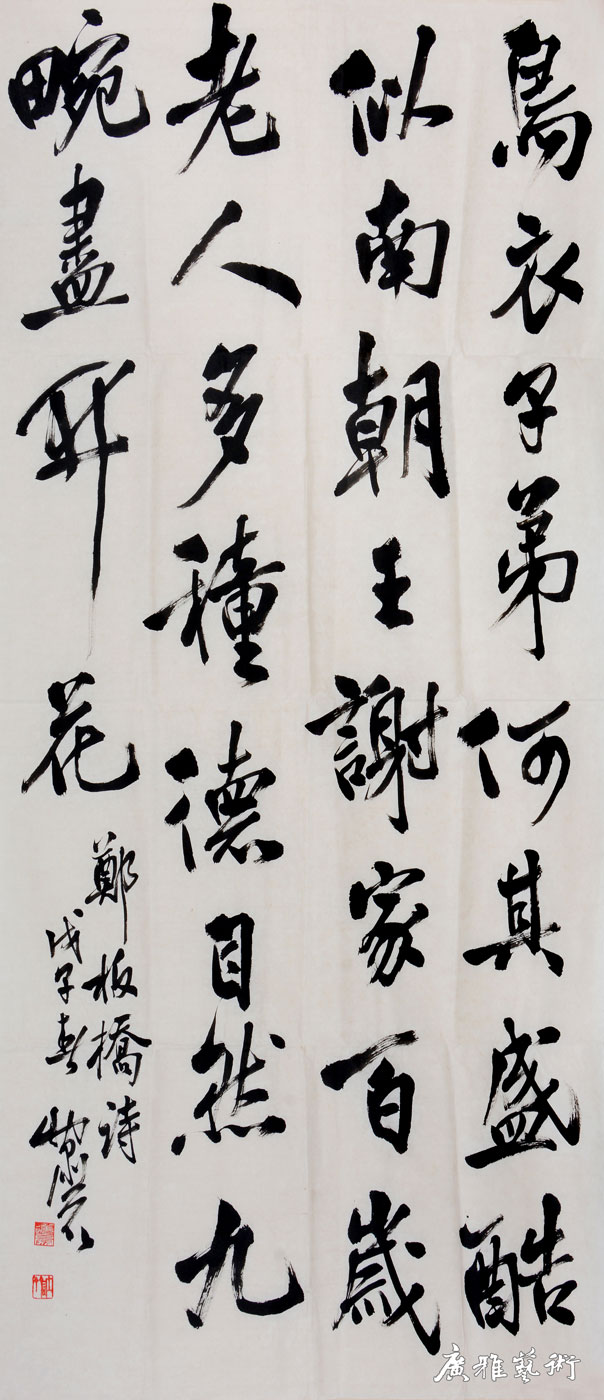 烏衣子弟何其盛酷
似南朝王謝家百歲
老人多種德自然九
畹盡開花
鄭板橋詩
戊子春
廣雅藝術